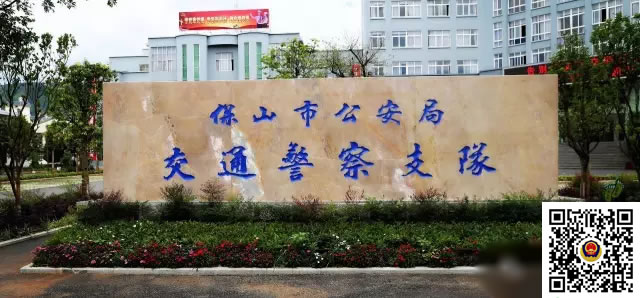 保山市公安局
交通警察支隊